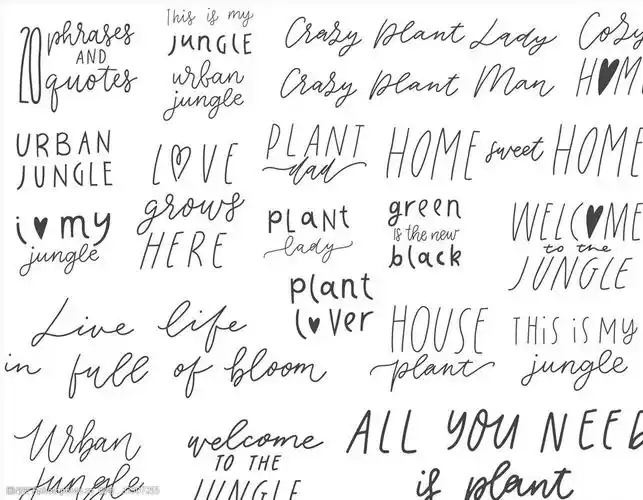 20 phrases
AND
quotes
This is my
JUNGLE
urban
jungle
Crazy Plant Lady
Crazy Plant Man
Cosy
HOME
URBAN
JUNGLE
LOVE
grows
HERE
PLANT
dad
HOME sweet HOME
i my
jungle
PLANT
lady
green
is the new
black
WELCOME
to the
JUNGLE
plant
lover
Live life
in full of bloom
HOUSE
plant
THIS iS MY
jungle
Urban
jungle
welcome
TO THE
JUNGLE
ALL YOU NEED
is plant